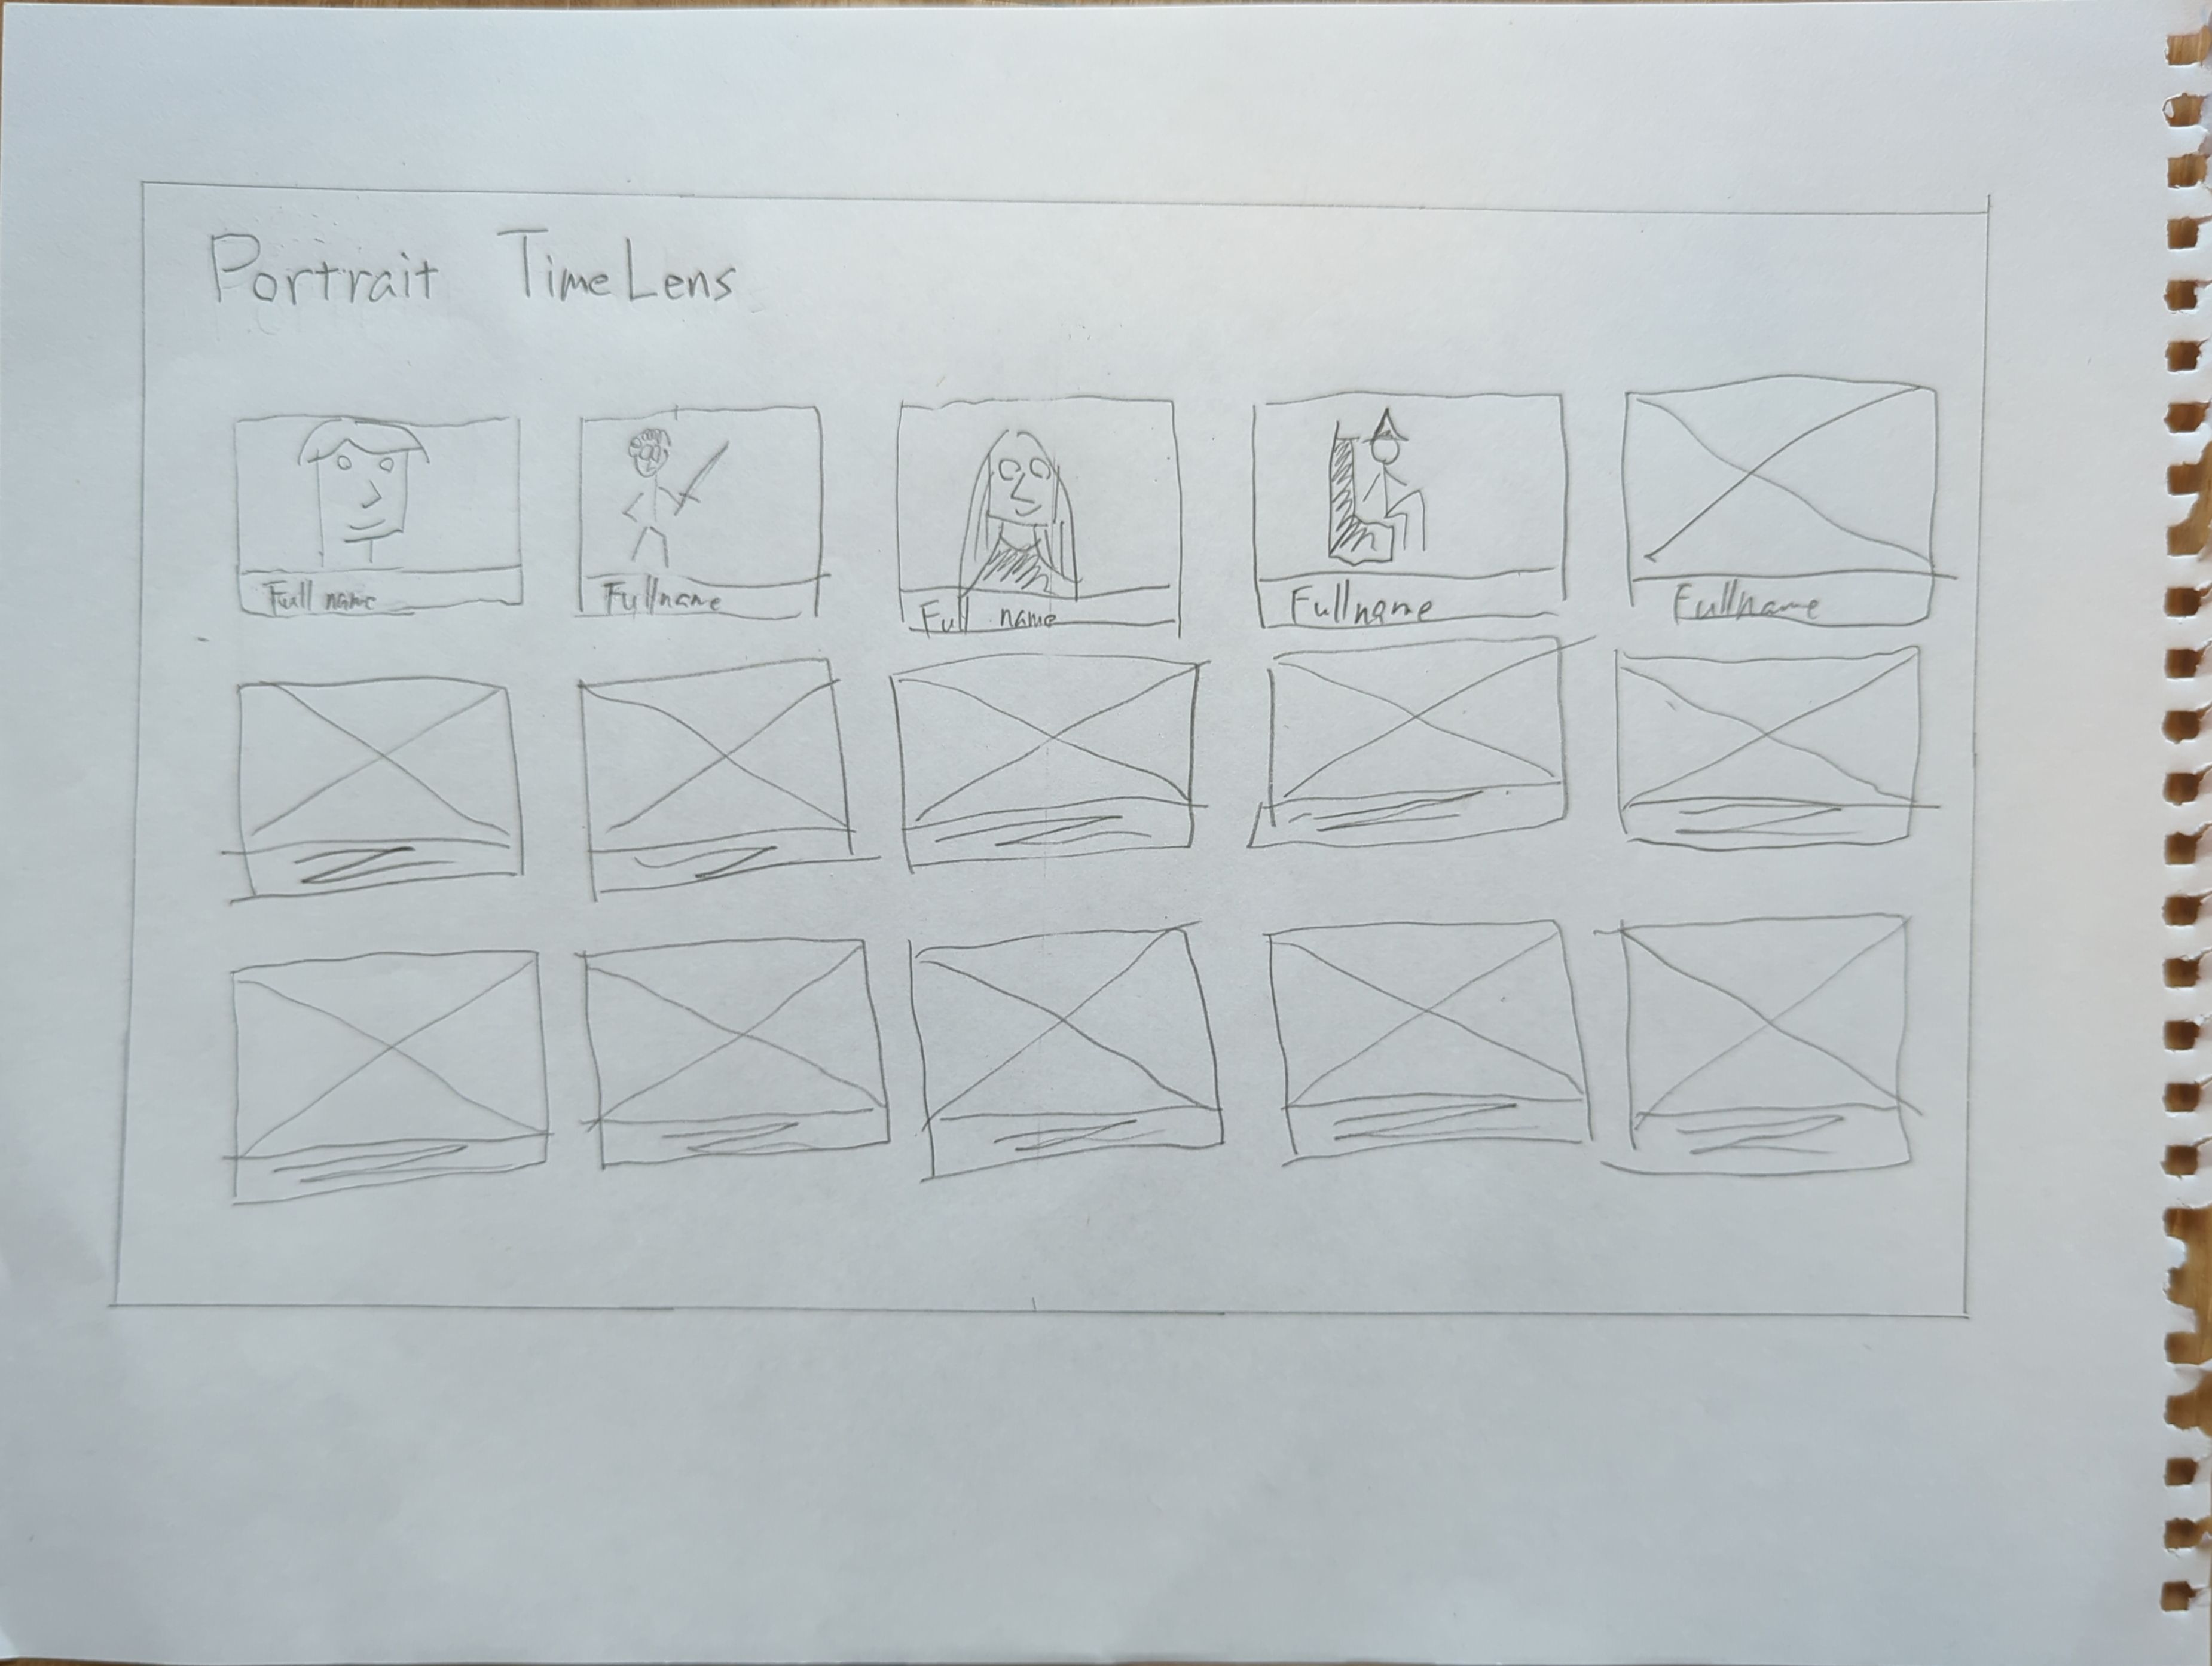 Portrait TimeLens
Full name
Fullname
Full name
Fullname
Fullname